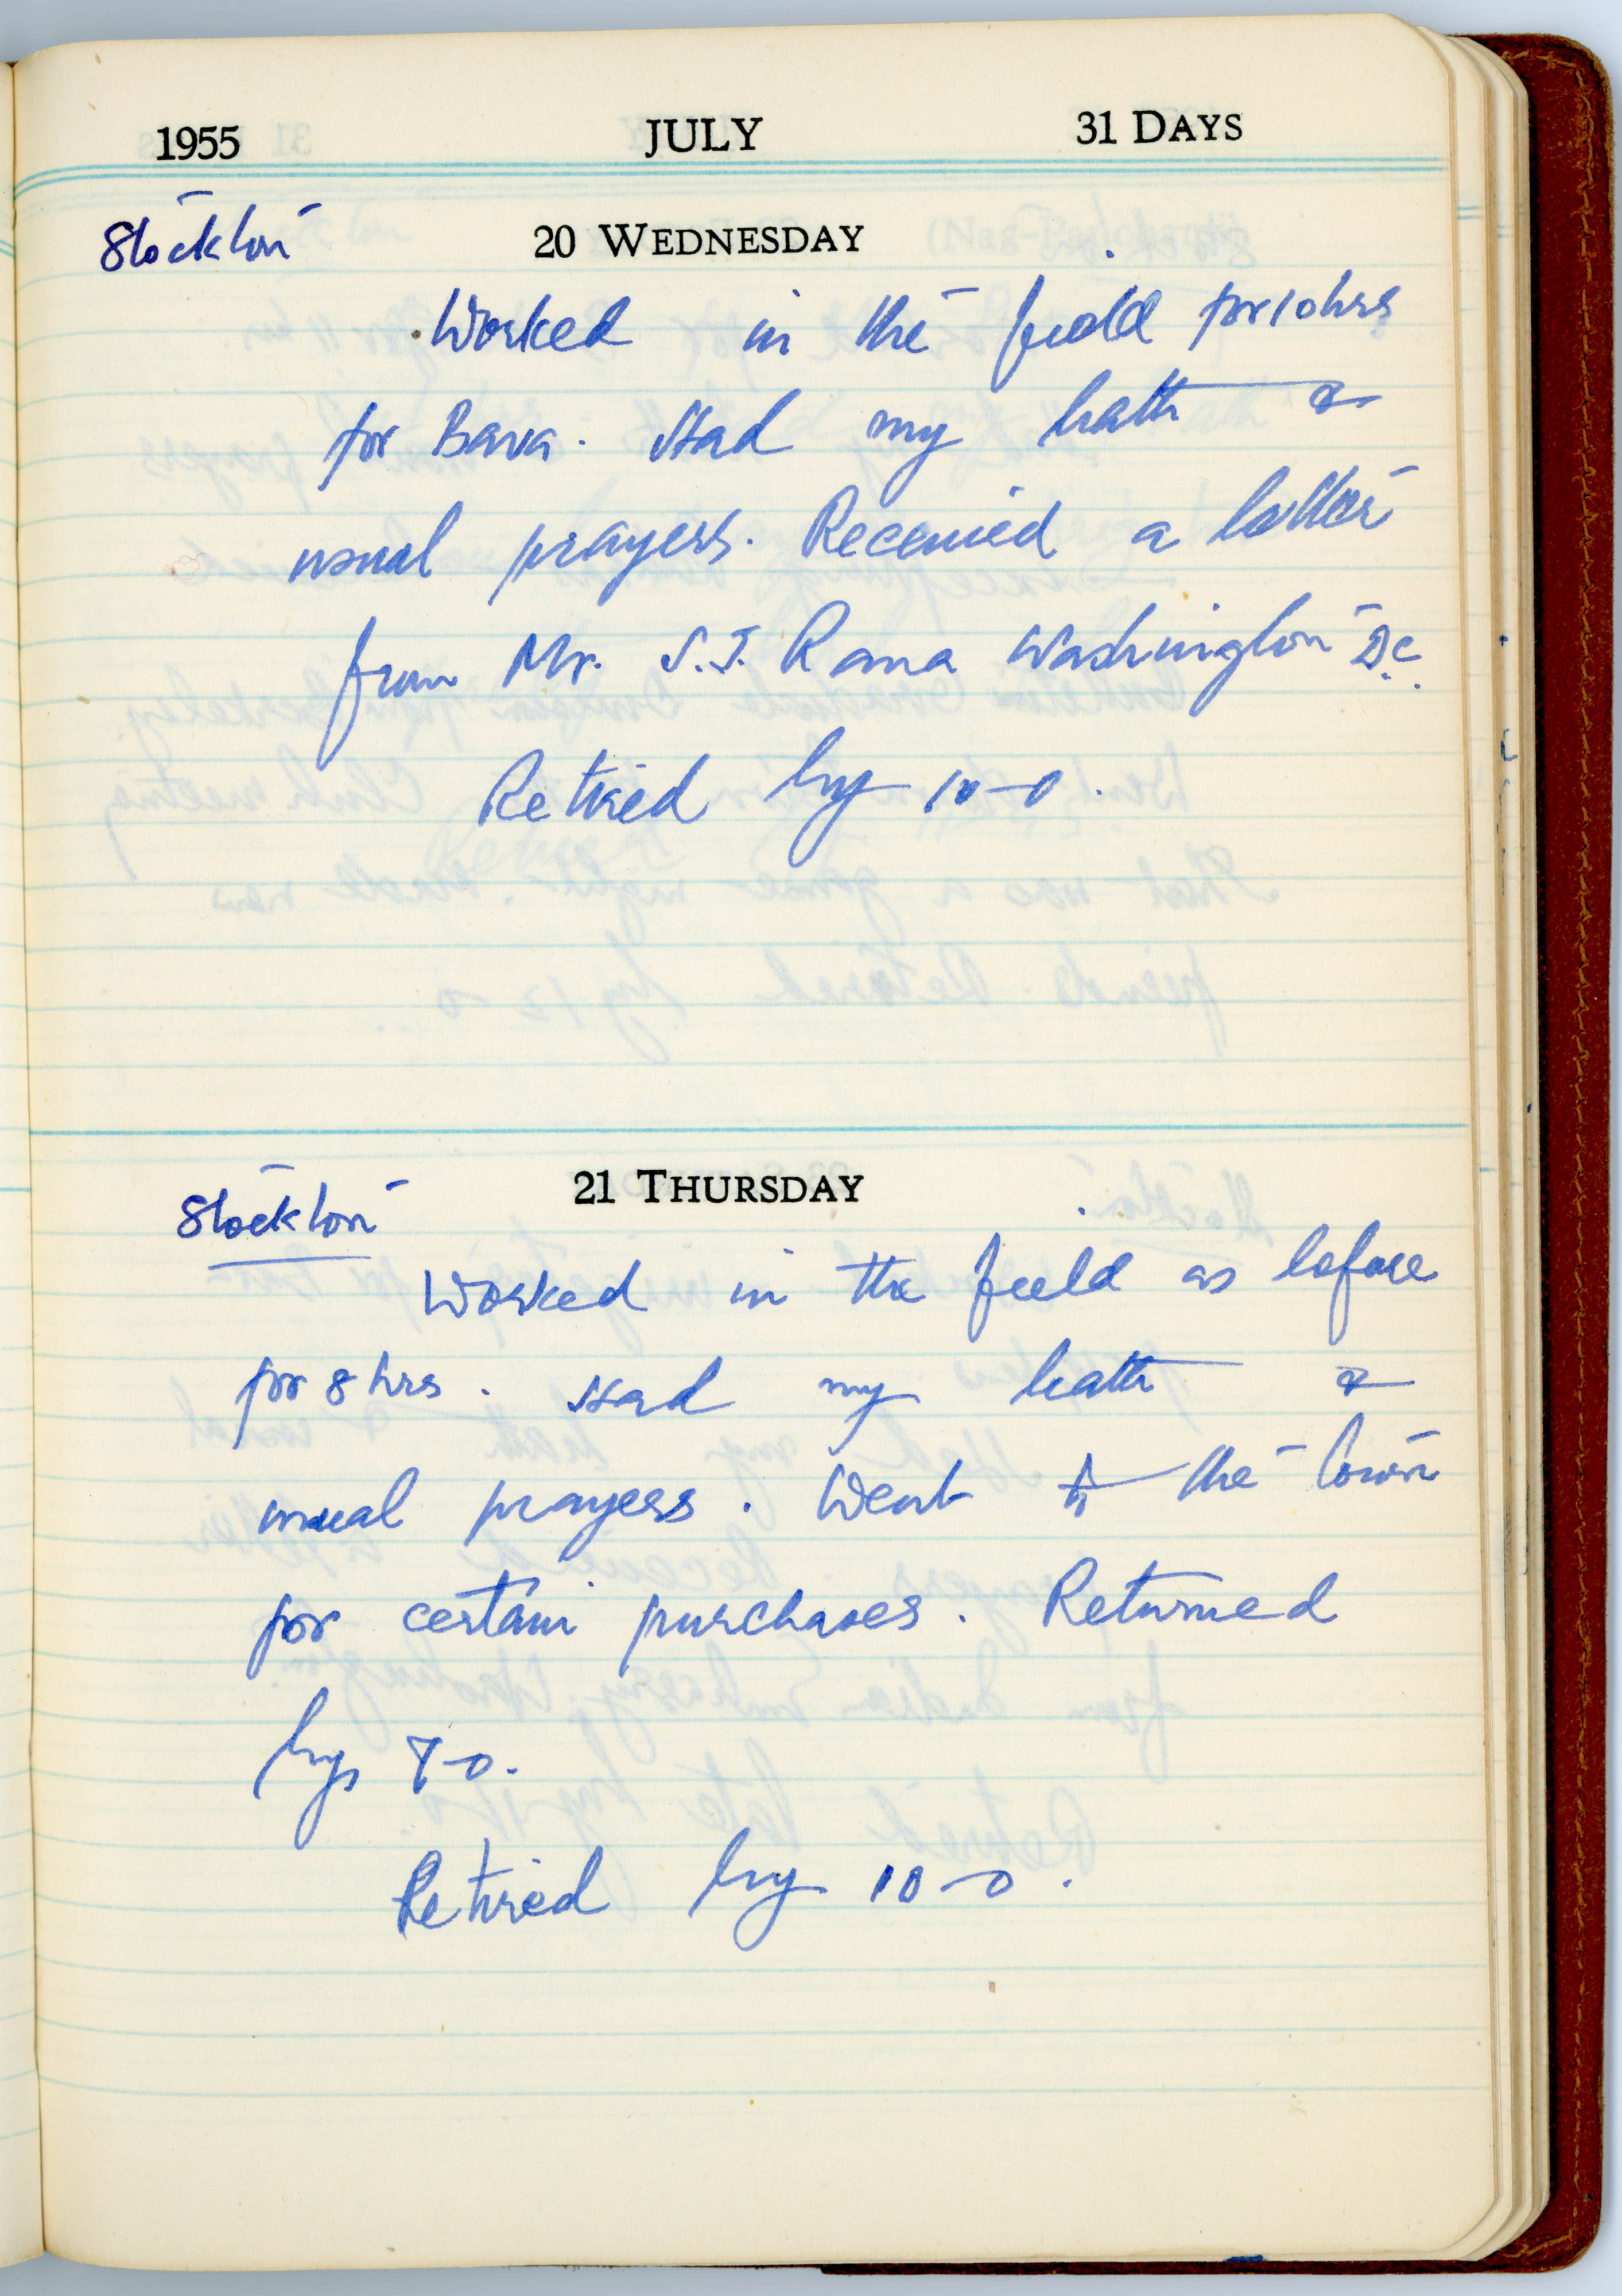 1955 JULY 31 DAYS
Stockton 20 WEDNESDAY
Worked in the field for 10 hrs
for Bava. Had my bath &
usual prayers. Received a letter
from Mr. S.J. Rana Washington D.C.
Retired by 10-0.
21 THURSDAY
Stockton
Worked in the field as before
for 8 hrs. Had my bath &
usual prayers. Went to the town
for certain purchases. Returned
by 7-0.
Retired by 10-0.